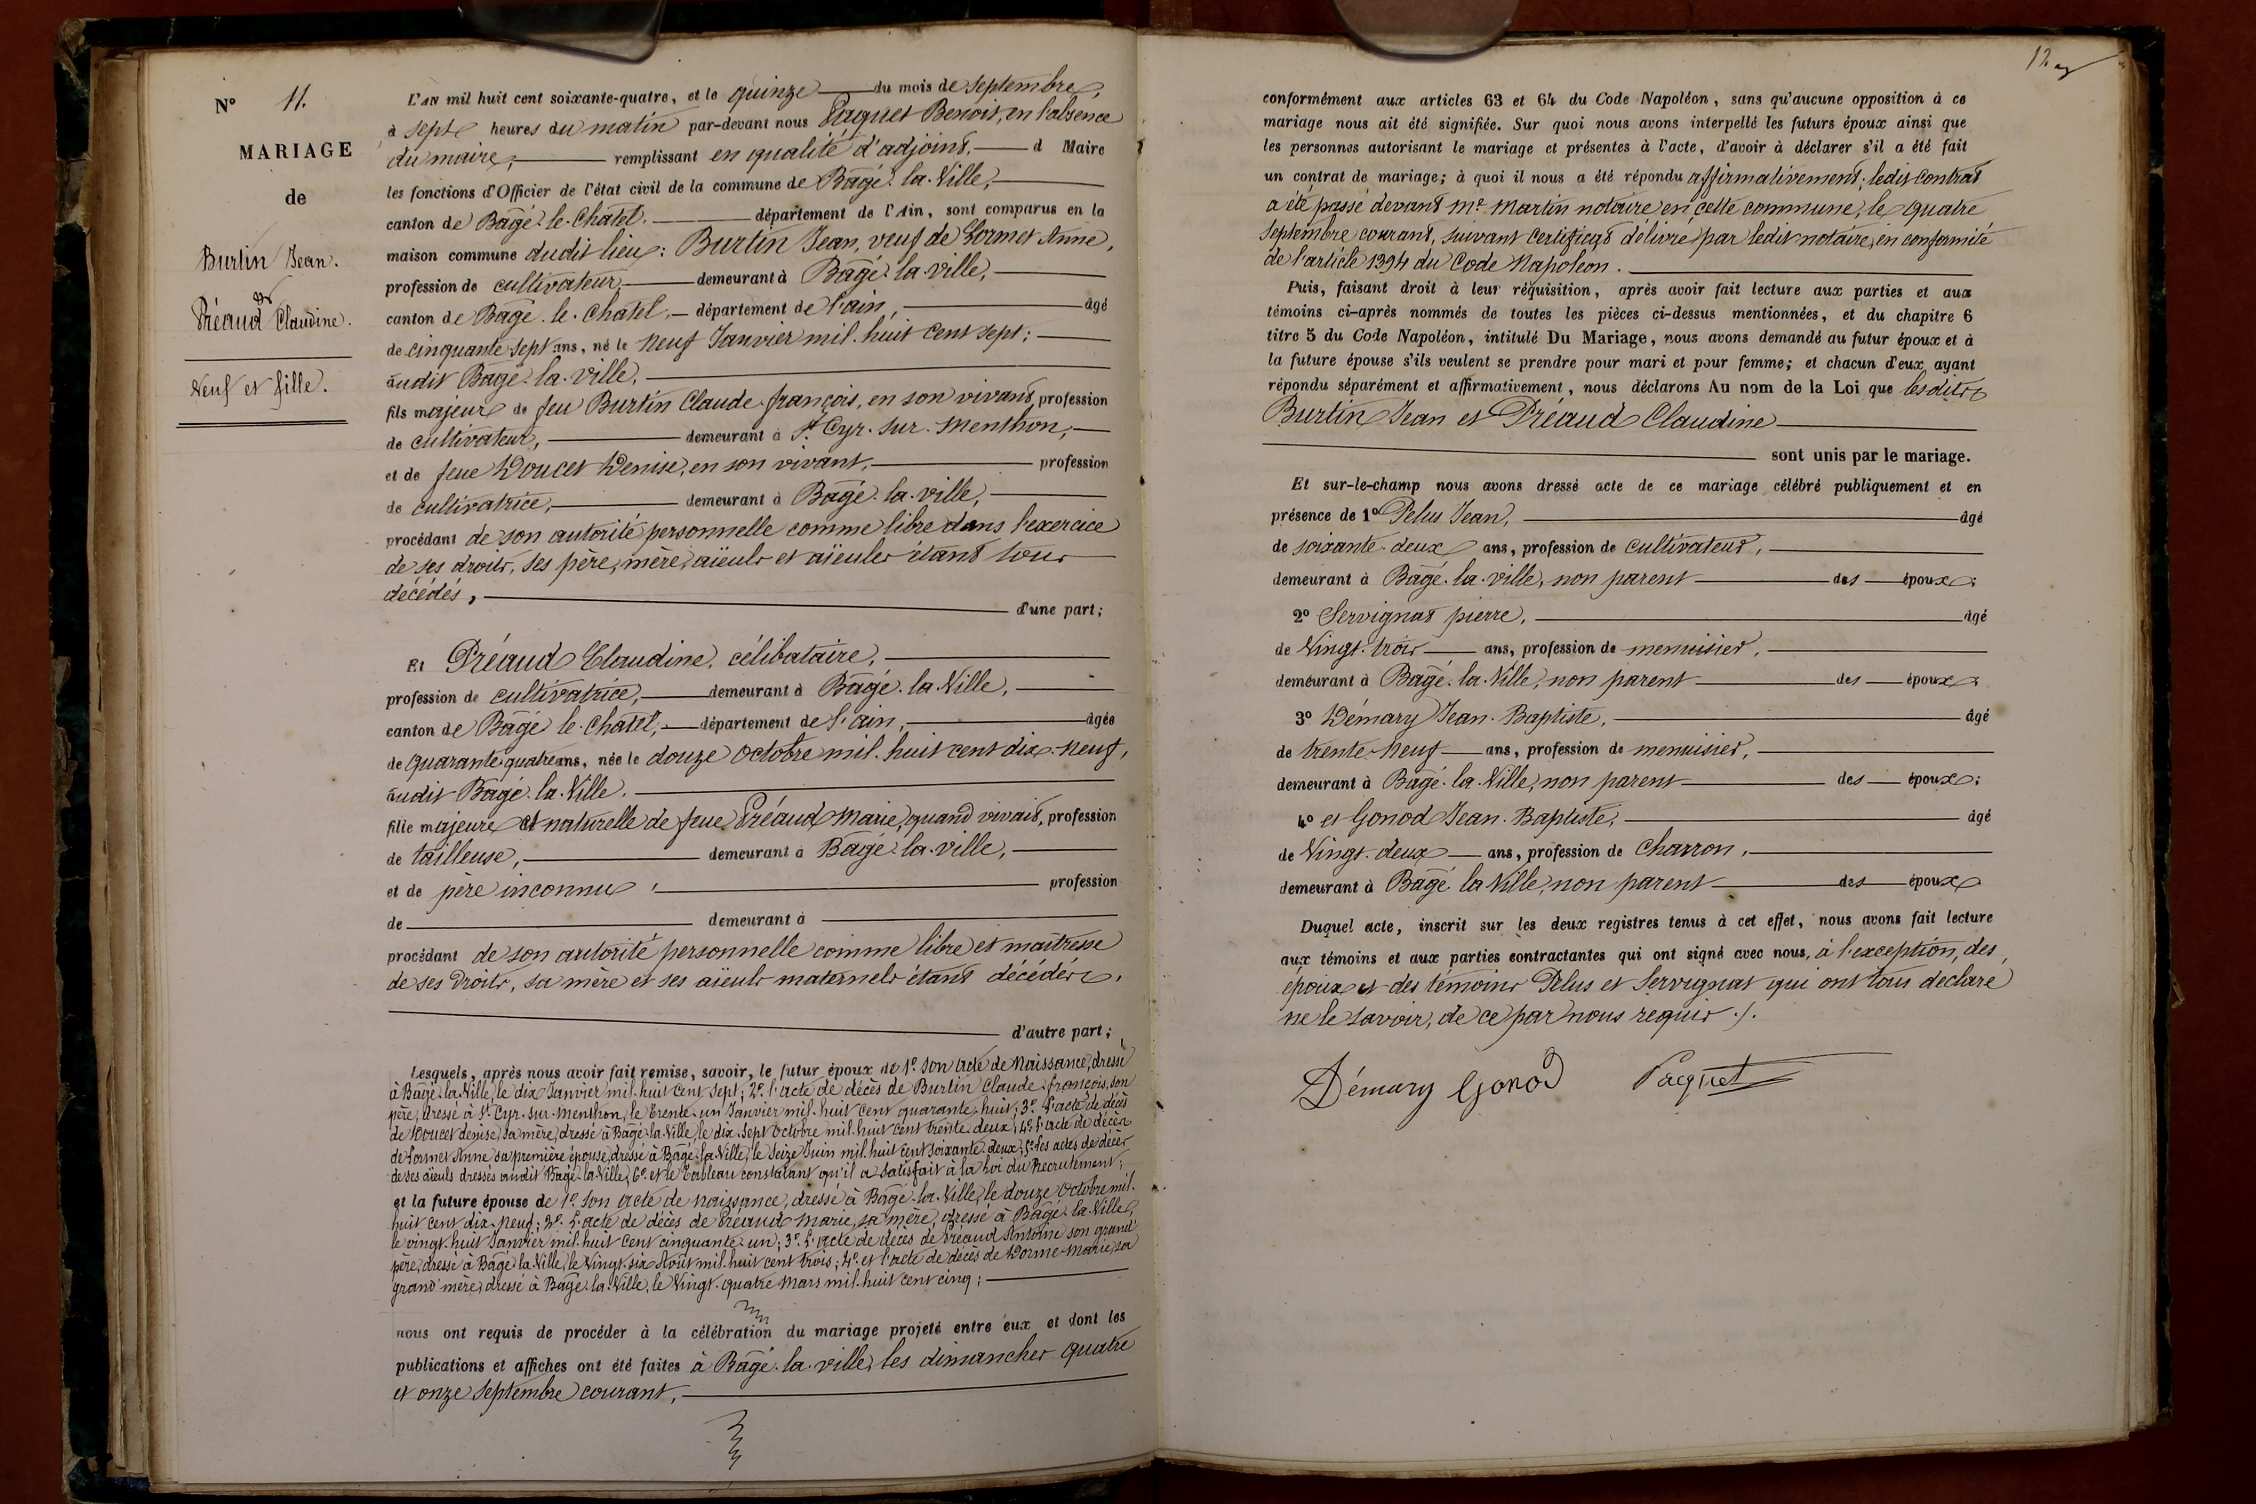 N° 11.
MARIAGE
de
Burtin Jean.
et
Préaud Claudine.
Veuf et fille.
L'AN mil huit cent soixante-quatre, et le quinze du mois de Septembre,
à sept heures du matin par-devant nous Paquet Benoit, en l'absence
du maire, remplissant en qualité d'adjoint, d Maire
les fonctions d'Officier de l'état civil de la commune de Bâgé-la-Ville,
canton de Bâgé-le-Châtel, département de l'Ain, sont comparus en la
maison commune dudit lieu: Burtin Jean, veuf de Lormet Anne,
profession de cultivateur, demeurant à Bâgé-la-ville,
canton de Bâgé-le-Châtel, département de l'ain, âgé
de cinquante sept ans, né le neuf Janvier mil-huit cent sept;
audit Bâgé-la-ville,
fils majeur de feu Burtin Claude-françois, en son vivant, profession
de cultivateur, demeurant à St Cyr-sur-Menthon,
et de feue Doucet Denise, en son vivant, profession
de cultivatrice, demeurant à Bâgé-la-ville,
procédant de son autorité personnelle comme libre dans l'exercice
de ses droits, ses père, mère, aïeuls et aïeules étant tous
décédés, d'une part;
Et Préaud Claudine, célibataire,
profession de cultivatrice, demeurant à Bâgé-la-Ville,
canton de Bâgé le-Châtel, département de l'ain, âgée
de quarante-quatre ans, née le douze Octobre mil-huit cent dix-neuf,
audit Bâgé-la-Ville.
fille majeure et naturelle de feue Préaud Marie, quand vivait, profession
de tailleuse, demeurant à Bâgé-la-ville,
et de père inconnu, profession
de demeurant à
procédant de son autorité personnelle comme libre et maîtresse
de ses droits, sa mère et ses aïeuls maternels étant décédés.
d'autre part;
Lesquels, après nous avoir fait remise, savoir, le futur époux de 1° son acte de Naissance, dressé
à Bâgé-la-Ville, le dix Janvier mil-huit cent sept; 2° l'acte de décès de Burtin Claude-françois, son
père, dressé à St Cyr-sur-Menthon, le trente-un Janvier mil-huit cent quarante-huit; 3° l'acte de décès
de Doucet denise, sa mère, dressé à Bâgé-la-Ville, le dix-sept Octobre mil-huit cent trente-deux; 4° l'acte de décès
de Lormet Anne sa première épouse, dressé à Bâgé-la-Ville, le Seize Juin mil-huit cent soixante-deux; 5° les actes de décès
de ses aïeuls dressés audit Bâgé-la-Ville; 6° et le Tableau constatant qu'il a satisfait à la Loi du Recrutement;
et la future épouse de 1° son acte de naissance, dressé à Bâgé-la-Ville, le douze Octobre mil-
huit cent dix-neuf; 2° l'acte de décès de Préaud Marie, sa mère, dressé à Bâgé-la-Ville,
le vingt-huit Janvier mil-huit cent cinquante-un; 3° l'acte de décès de Préaud Antoine son grand
père, dressé à Bâgé-la-Ville, le Vingt-six Août mil-huit cent trois; 4° et l'acte de décès de Dorme Marie, sa
grand'mère, dressé à Bâgé-la-Ville, le Vingt-quatre Mars mil-huit cent cinq;
nous ont requis de procéder à la célébration du mariage projeté entre eux et dont les
publications et affiches ont été faites à Bâgé-la-ville, les dimanches quatre
et onze Septembre courant,
12
conformément aux articles 63 et 64 du Code Napoléon, sans qu'aucune opposition à ce
mariage nous ait été signifiée. Sur quoi nous avons interpellé les futurs époux ainsi que
les personnes autorisant le mariage et présentes à l'acte, d'avoir à déclarer s'il a été fait
un contrat de mariage; à quoi il nous a été répondu affirmativement; ledit contrat
a été passé devant Me Martin notaire en cette commune, le quatre
Septembre courant, suivant certificat délivré par ledit notaire, en conformité
de l'article 1394 du Code Napoléon.
Puis, faisant droit à leur réquisition, après avoir fait lecture aux parties et aux
témoins ci-après nommés de toutes les pièces ci-dessus mentionnées, et du chapitre 6
titre 5 du Code Napoléon, intitulé Du Mariage, nous avons demandé au futur époux et à
la future épouse s'ils veulent se prendre pour mari et pour femme; et chacun d'eux ayant
répondu séparément et affirmativement, nous déclarons Au nom de la Loi que lesdits
Burtin Jean et Préaud Claudine
sont unis par le mariage.
Et sur-le-champ nous avons dressé acte de ce mariage célébré publiquement et en
présence de 1° Pelus Jean, âgé
de soixante-deux ans, profession de cultivateur,
demeurant à Bâgé-la-ville, non parent des époux;
2° Servignat pierre, âgé
de Vingt-trois ans, profession de menuisier,
demeurant à Bâgé-la-Ville, non parent des époux;
3° Démary Jean-Baptiste, âgé
de trente-neuf ans, profession de menuisier,
demeurant à Bâgé-la-Ville, non parent des époux;
4° et Gonod Jean-Baptiste, âgé
de Vingt-deux ans, profession de Charron,
demeurant à Bâgé-la-Ville, non parent des époux
Duquel acte, inscrit sur les deux registres tenus à cet effet, nous avons fait lecture
aux témoins et aux parties contractantes qui ont signé avec nous, à l'exception, des
époux et des témoins Pelus et Servignat qui ont tous déclaré
ne le savoir, de ce par nous requis ./.
Démary Gonod Pacquet